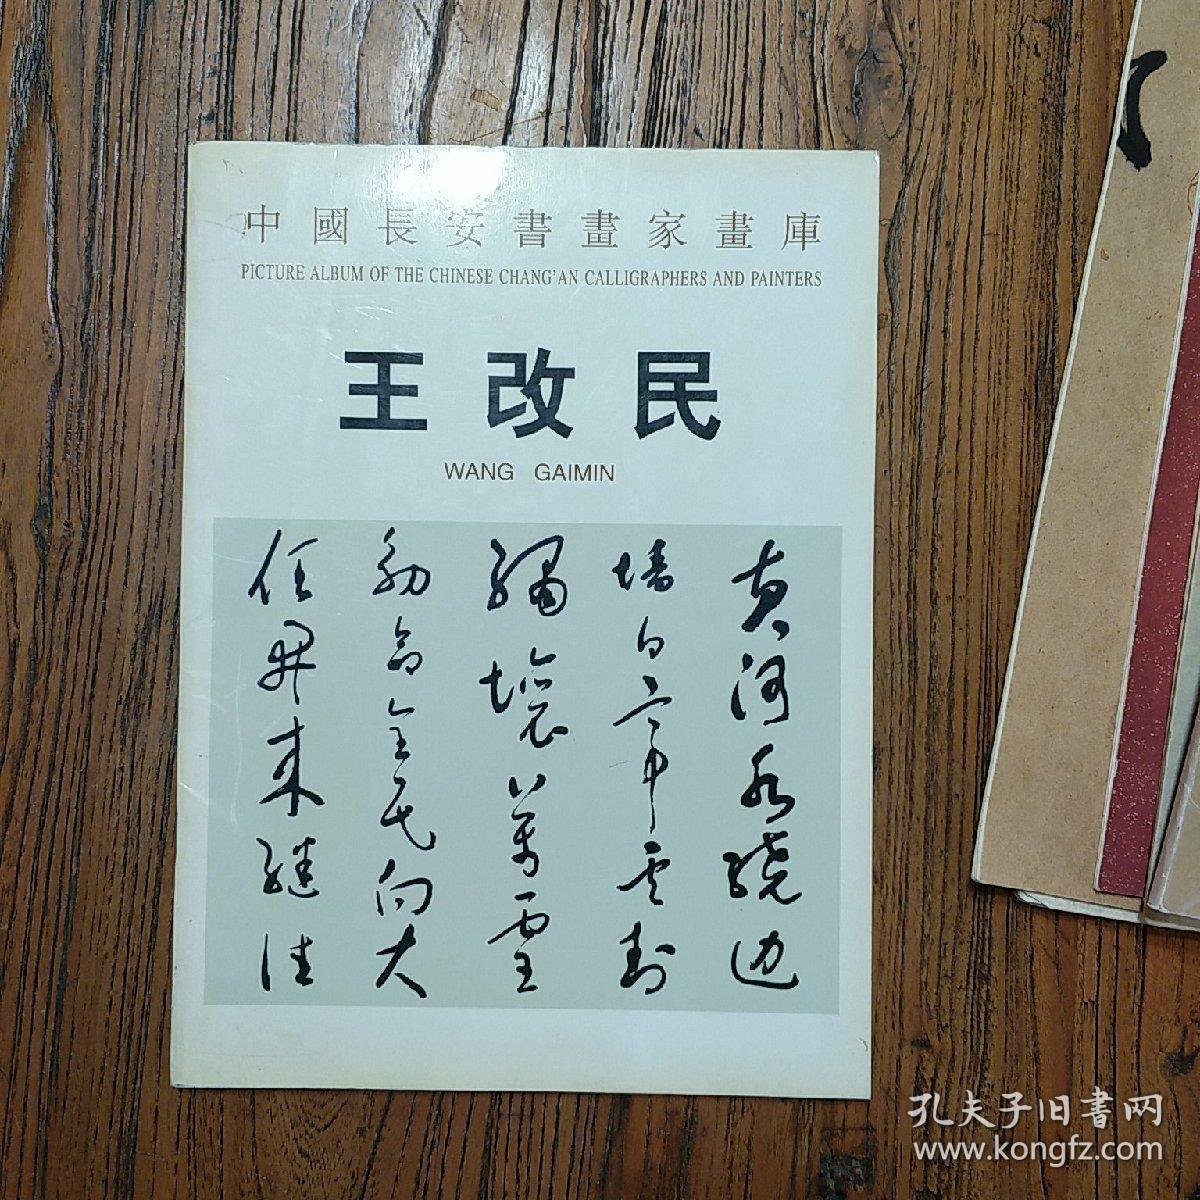 中國長安書畫家畫庫
PICTURE ALBUM OF THE CHINESE CHANG'AN CALLIGRAPHERS AND PAINTERS
王改民
WANG GAIMIN
黄河水绕边
墙白草云封
绣壤万灵
初合全民向大
任开来继往
孔夫子旧書网
www.kongfz.com